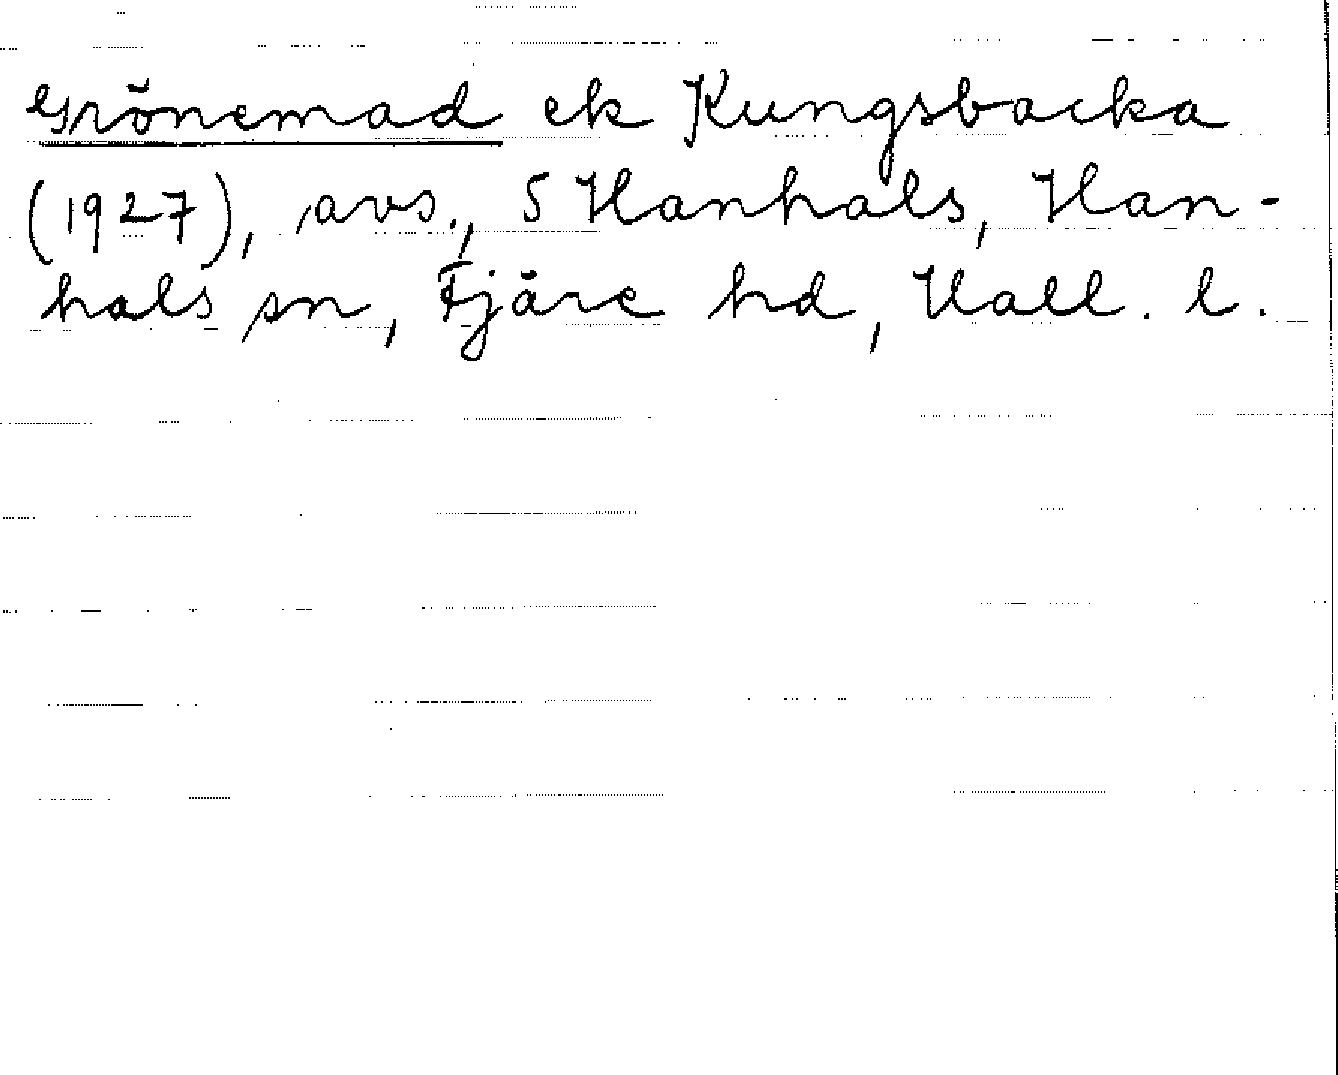 Grönemad ek Kungsbacka
(1927), avs., S Hanhals, Han-
hals sn, Fjäre hd, Hall. l.